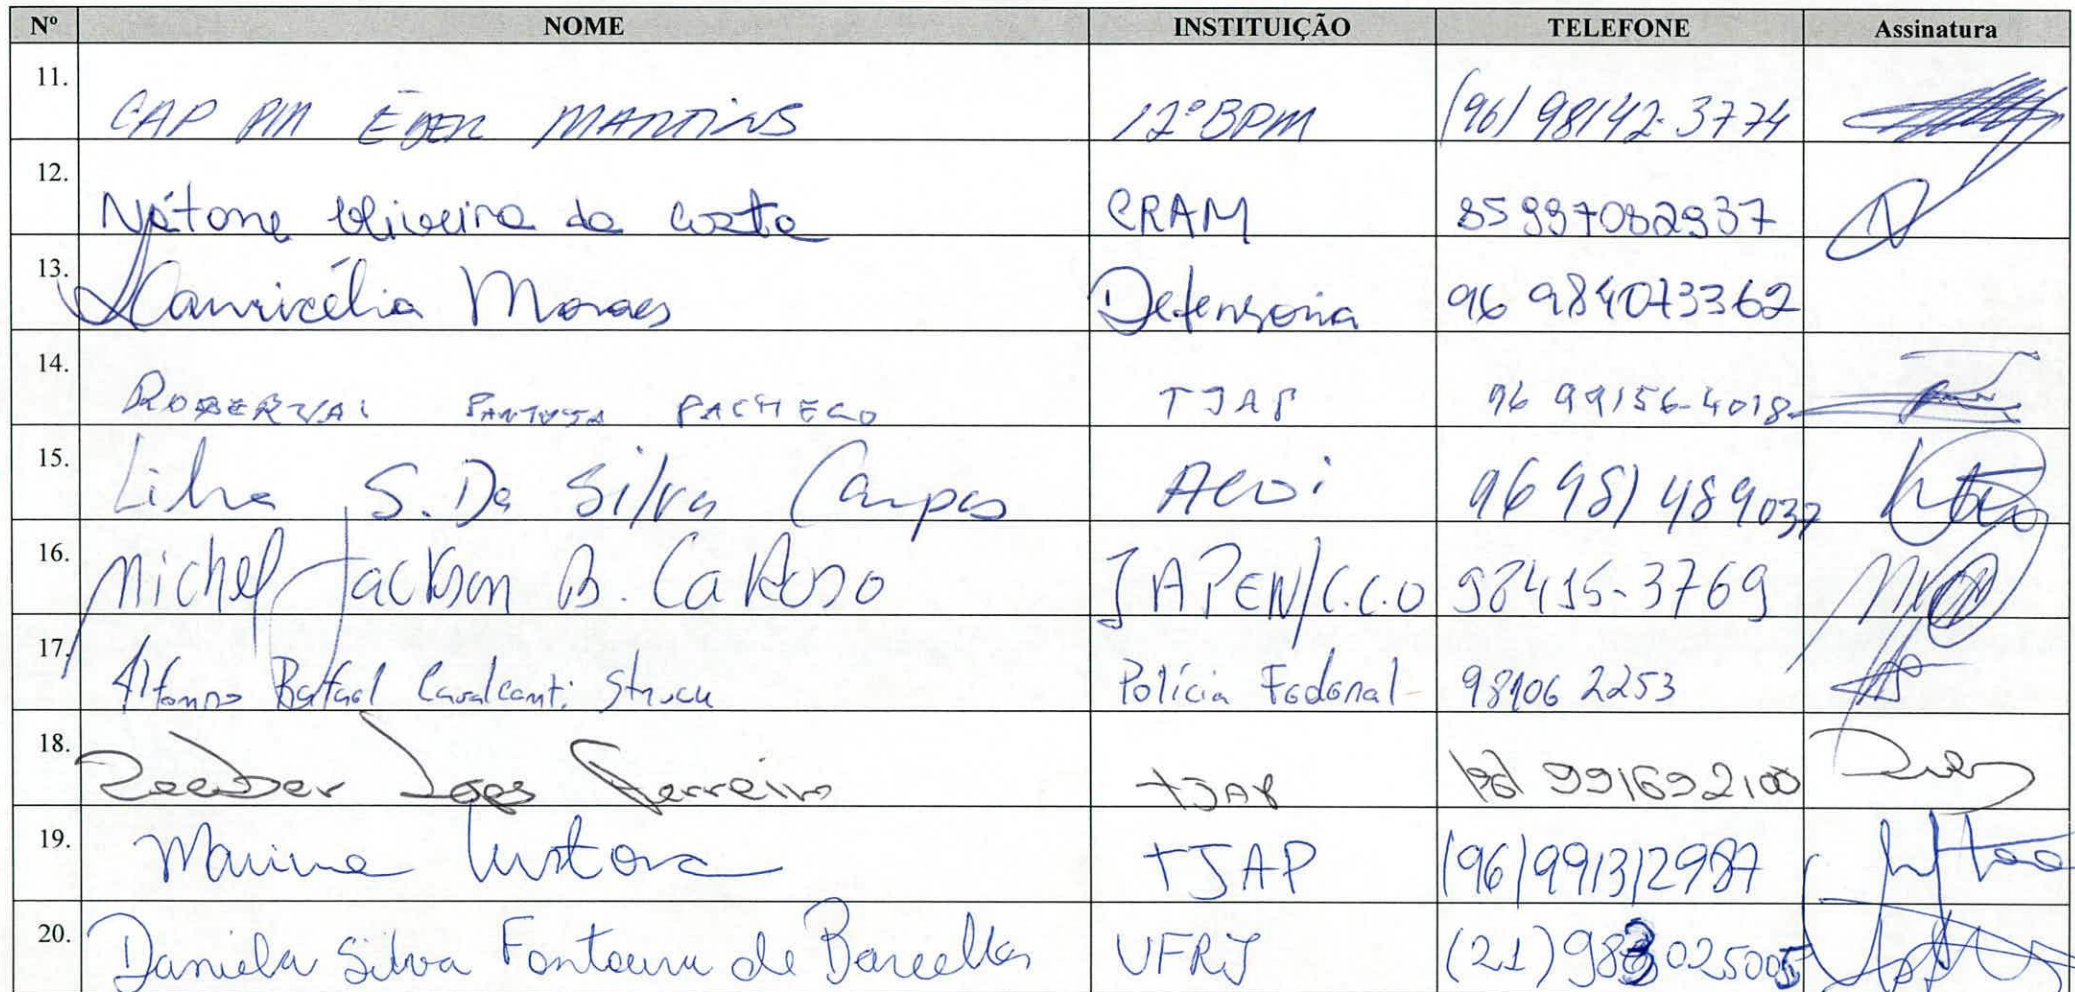 Nº NOME INSTITUIÇÃO TELEFONE Assinatura
11. CAP PM ÉDER MARTINS 12º BPM (96) 98142-3774
12. Nátone Oliveira da Costa CRAM 85997082937
13. Lauricélia Moraes Defensoria 96 984073362
14. ROBERVAL PANTOJA PACHECO TJAP 96 99156-4018
15. S. Da Silva Campos 96 981489037
16. Michel Jackson B. Cardoso IAPEN/C.C.O 98415-3769
17. Rafael Cavalcanti Polícia Federal 98106 2253
18. Ferreira TJAP 991692100
19. TJAP (96) 991312987
20. Daniela Silva Fontoura de Barcellos UFRJ (21) 983025005